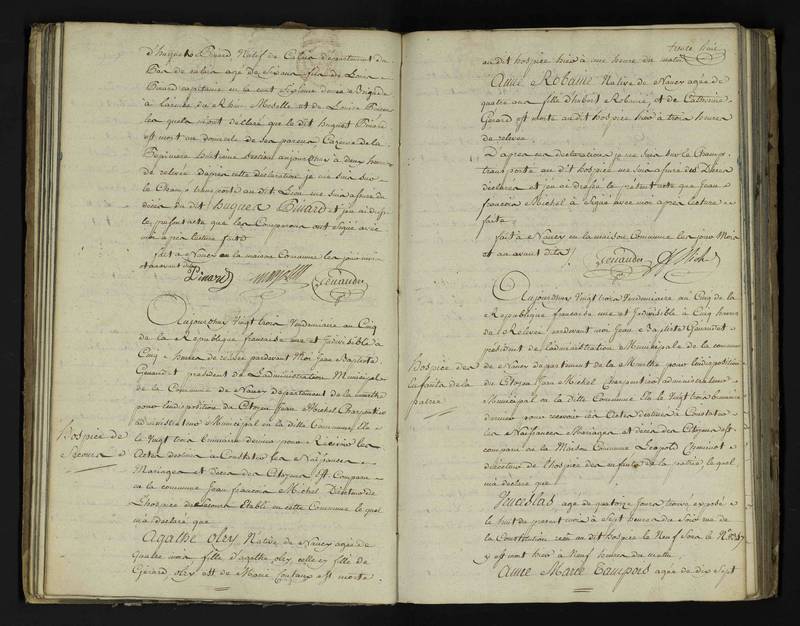 d'huguet Pinard, Natif de Calais département du
Pas de Calais agé de Six ans fils de Louis
Pinard capitaine en la cent Sixième demie Brigade
à l'armée du Rhin Moselle et de Louise
les quels m'ont déclaré que le dit huguet Pinard
est mort au domicile de ses pareus Cazerne de la
Pépiniere huitieme Section aujourd'hui à deux heures
de relevée d'après cette déclaration je me suis sur
le Champ transporté au dit Lieu me suis assuré du
décès du dit huguet Pinard et j'ai dressé
le présent acte que les Comparans ont Signé avec
moi après lecture faite
fait a Nancy en la maison Commune les jour mois
et an avant dits
Pinard
Genaudet
Aujourd'hui Vingt trois Vendemiaire an Cinq
de la République francaise une et Indivisible à
Cinq heures de relevée pardevant Moi Jean Baptiste
Genaudet président de L'administration Municipale
de la Commune de Nancy département de la Meurthe
pour l'indisposition du Citoyen Jean Michel Charpentier
administrateur Municipal en la ditte Commune Elu
le Vingt trois brumaire dernier pour Recevoir les
Hospice de
Secours
Actes destinés à Constater les Naissances
Mariages et décès des Citoyens Est Comparu
en la commune Jean francois Michel Directeur de
L'hospice de Secours Etabli en cette Commune le quel
m'a déclaré que
Agathe olry, Native de Nancy agée de
Quatre mois fille d'agathe olry, celle cy fille de
Gérard olry et de Marie est morte
trente huit
au dit hospice hier à une heure du matin
Anne Robaine Native de Nancy agée de
quatre ans fille d'hubert Robaine, et de Catherine
Gérard est morte au dit hospice hier à trois heures
de relevée
D'après ces déclarations je me suis sur le Champ
transporté au dit hospice me suis assuré des Décès
déclarés et j'ai dressé le présent acte que Jean
francois Michel à Signé avec moi après lecture
faite
fait à Nancy en la maison Commune les jour Mois
et an avant dits
Genaudet
Michel
Aujourd'hui Vingt trois Vendemiaire an Cinq de la
République francaise une et Indivisible à Cinq heures
de Relevée pardevant moi Jean Baptiste Genaudet
président de l'administration Municipale de la commune
Hospice des
Enfants de la
patrie
de Nancy departement de la Meurthe pour l'indisposition
du Citoyen Jean Michel Charpentier administrateur
Municipal en la ditte Commune Elu le Vingt trois brumaire
dernier pour recevoir les Actes destinés à Constater
les Naissances Mariages et décès des Citoyens est
comparu en la Maison Commune Léopold
directeur de l'hospice des enfants de la patrie, le quel
m'a déclaré que
Venceslas agé de quatorze jours trouvé exposé
le huit du present mois à Sept heures du Soir rue de
la Constitution reçu au dit hospice le Neuf Sous le N°
y est mort hier à Neuf heures du matin
Anne Marie agée de dix Sept